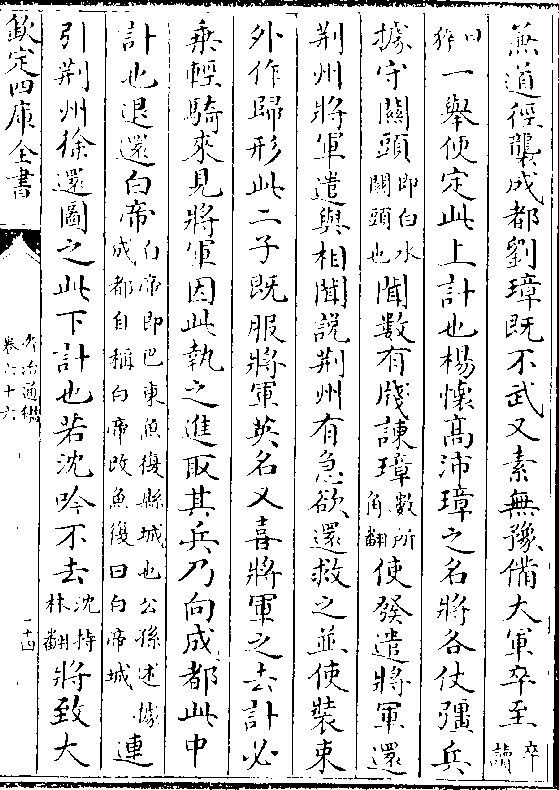 兼道徑襲成都劉璋既不武又素無豫備大軍卒至卒讀
曰猝一舉便定此上計也楊懷高沛璋之名將各仗彊兵
據守關頭即白水關頭也聞數有牋諫璋數所角翻使發遣將軍還
荆州將軍遣與相聞說荆州有急欲還救之並使裝束
外作歸形此二子既服將軍英名又喜將軍之去計必
乘輕騎來見將軍因此執之進取其兵乃向成都此中
計也退還白帝白帝即巴東魚復縣城也公孫述據成都自稱白帝改魚復曰白帝城連
引荆州徐還圖之此下計也若沈吟不去沈持林翻將致大
欽定四庫全書
資治通鑑
卷六十六
二十四